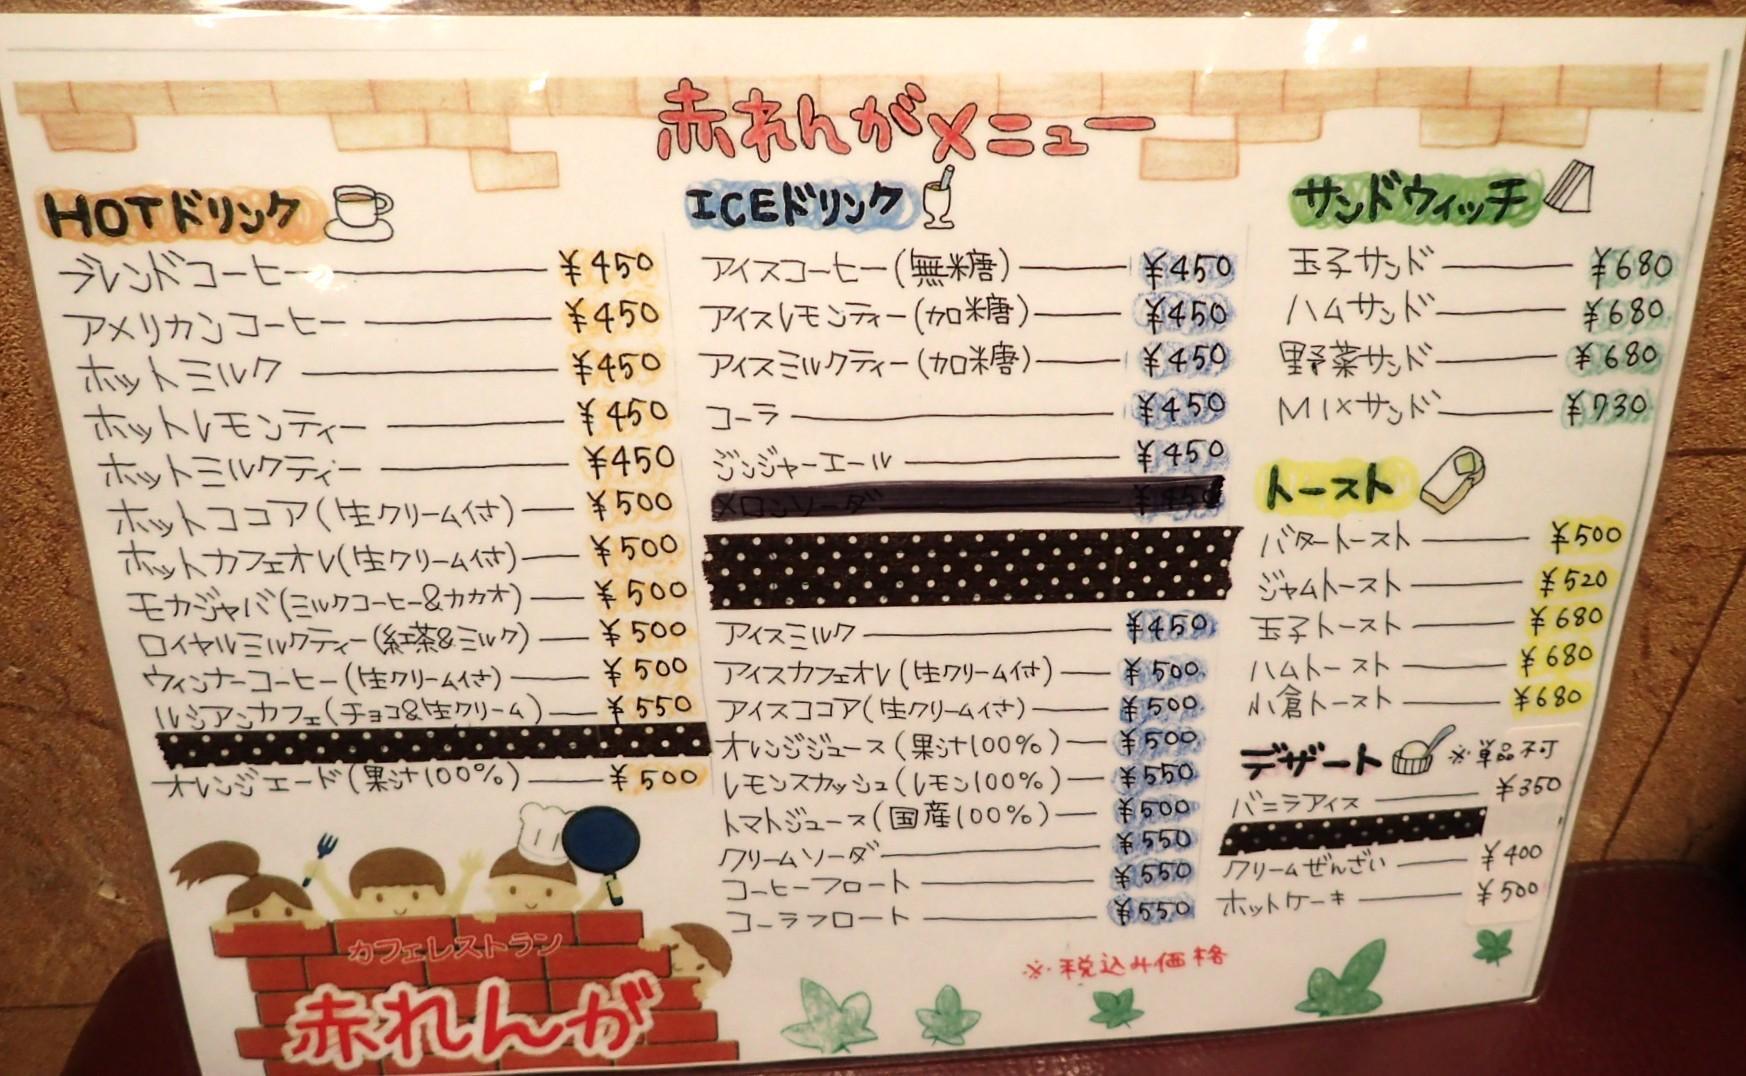 赤れんがメニュー
HOTドリンク
ブレンドコーヒー ¥450
アメリカンコーヒー ¥450
ホットミルク ¥450
ホットレモンティー ¥450
ホットミルクティー ¥450
ホットココア(生クリーム付き) ¥500
ホットカフェオレ(生クリーム付き) ¥500
モカジャバ(ミルクコーヒー&カカオ) ¥500
ロイヤルミルクティー(紅茶&ミルク) ¥500
ウィンナーコーヒー(生クリーム付き) ¥500
ルシアンカフェ(チョコ&生クリーム) ¥550
オレンジエード(果汁100%) ¥500
カフェレストラン
赤れんが
ICEドリンク
アイスコーヒー(無糖) ¥450
アイスレモンティー(加糖) ¥450
アイスミルクティー(加糖) ¥450
コーラ ¥450
ジンジャーエール ¥450
メロンソーダ ¥450
アイスミルク ¥450
アイスカフェオレ(生クリーム付き) ¥500
アイスココア(生クリーム付き) ¥500
オレンジジュース(果汁100%) ¥500
レモンスカッシュ(レモン100%) ¥550
トマトジュース(国産100%) ¥500
クリームソーダ ¥550
コーヒーフロート ¥550
コーラフロート ¥550
※税込み価格
サンドウィッチ
玉子サンド ¥680
ハムサンド ¥680
野菜サンド ¥680
MIXサンド ¥730
トースト
バタートースト ¥500
ジャムトースト ¥520
玉子トースト ¥680
ハムトースト ¥680
小倉トースト ¥680
デザート ※単品不可
バニラアイス ¥350
クリームぜんざい ¥400
ホットケーキ ¥500